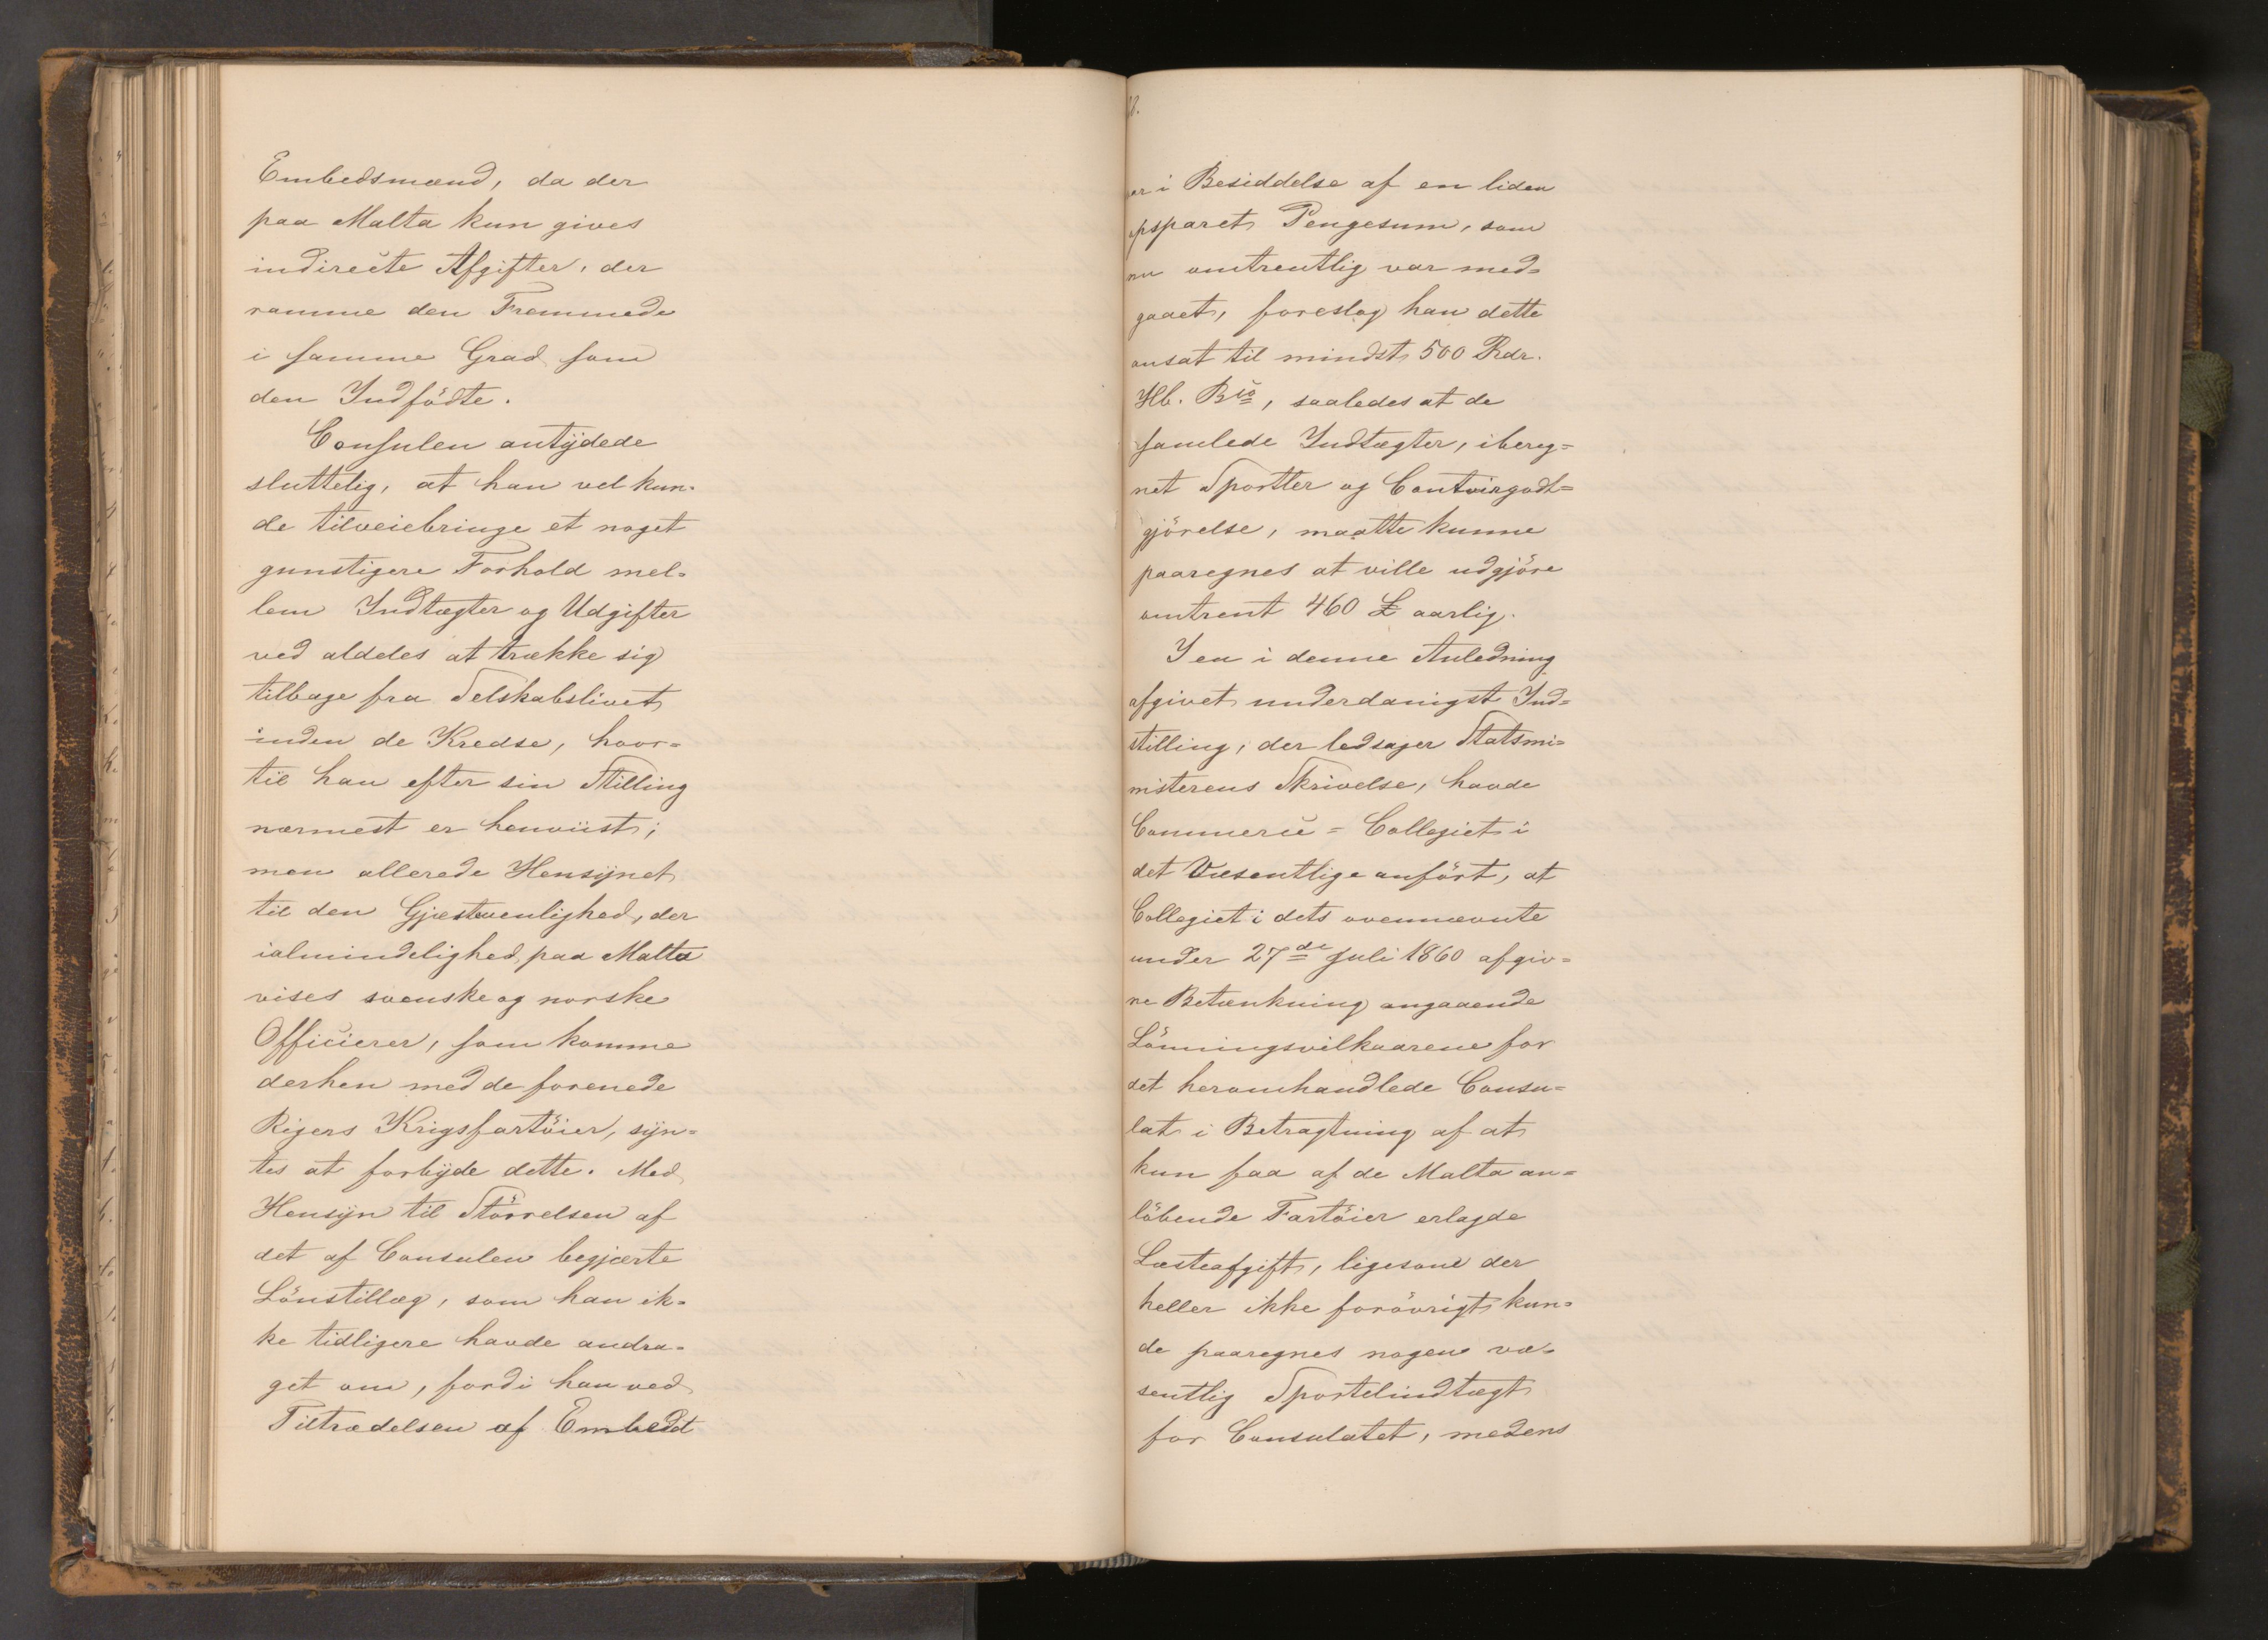 Embedsmænd, da der
paa Malta kun gives
indirecte Afgifter, der
ramme den Fremmede
i samme Grad som
den Indfödte.
Consulen antydede
sluttelig, at han vel kun-
de tilveiebringe et noget
gunstigere Forhold mel-
lem Indtægter og Udgifter
ved aldeles at trække sig
tilbage fra Selskabslivet
inden de Kredse, hvor-
til han efter sin Stilling
nærmest er henviist;
men allerede Hensynet
til den Gjæstvenlighed, der
ialmindelighed paa Malta
vises svenske og norske
Officierer, som komme
derhen med de forenede
Rigers Krigsfartöier, syn-
tes at forbyde dette. Med
Hensyn til Störrelsen af
det af Consulen begjærte
Lönstillæg, som han ik-
ke tidligere havde andra-
get om, fordi han ved
Tiltrædelsen af Embedt
8.
er i Besiddelse af en liden
psparet Pengesum, som
nu omtrentlig var med-
gaaet, foreslog han dette
ansat til mindst 500 Rdr.
Hb. Bco, saaledes at de
samlede Indtægter, ibereg-
net Sportler og Contoirgodt-
gjörelse, maatte kunne
paaregnes at ville udgjöre
omtrent 460 £ aarlig.
I en i denne Anledning
afgivet underdanigst Ind-
stilling, der ledsager Statsmi-
nisterens Skrivelse, havde
Commerce-Collegiet i
det Væsentlige anfört, at
Collegiet i dets ovennævnte
under 27de Juli 1860 afgiv-
ne Betænkning angaaende
Lönningsvilkaarene for
det heromhandlede Consu-
lat i Betragtning af at
kun faa af de Malta an-
löbende Fartöier erlagde
Læsteafgift, ligesom der
heller ikke forövrigt kun-
de paaregnes nogen væ-
sentlig Sportelindtægt
for Consulatet, medens